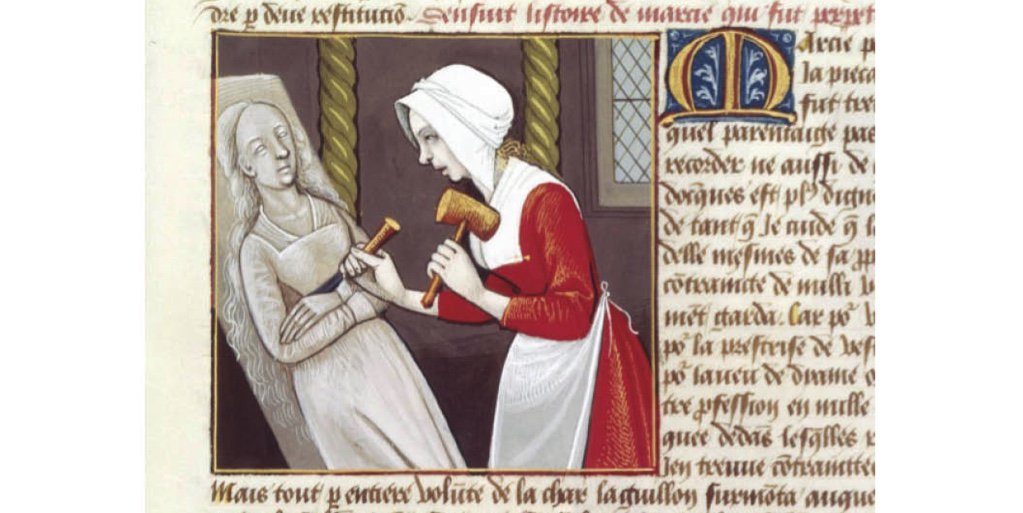 dre p deue restitucio. Sensuit listoire de marcie qui fut perpet
Marcie p
la pieca
fut tro
quel parentaige pas
recorder ne aussi de
docques est pl9 digne
de tant q̃ Je cuide q̃ l
delle mesmes de sa p
cõtraincte de nulli v
mẽt garda. Car po
po la prestrise de ves
po laueu de dyane o
tre pfession en mille
quee dedãs lesq̃lles
Jen treuue cõtrainttee
Mais tout p entiere volũte de la char laguillon surmõta auque